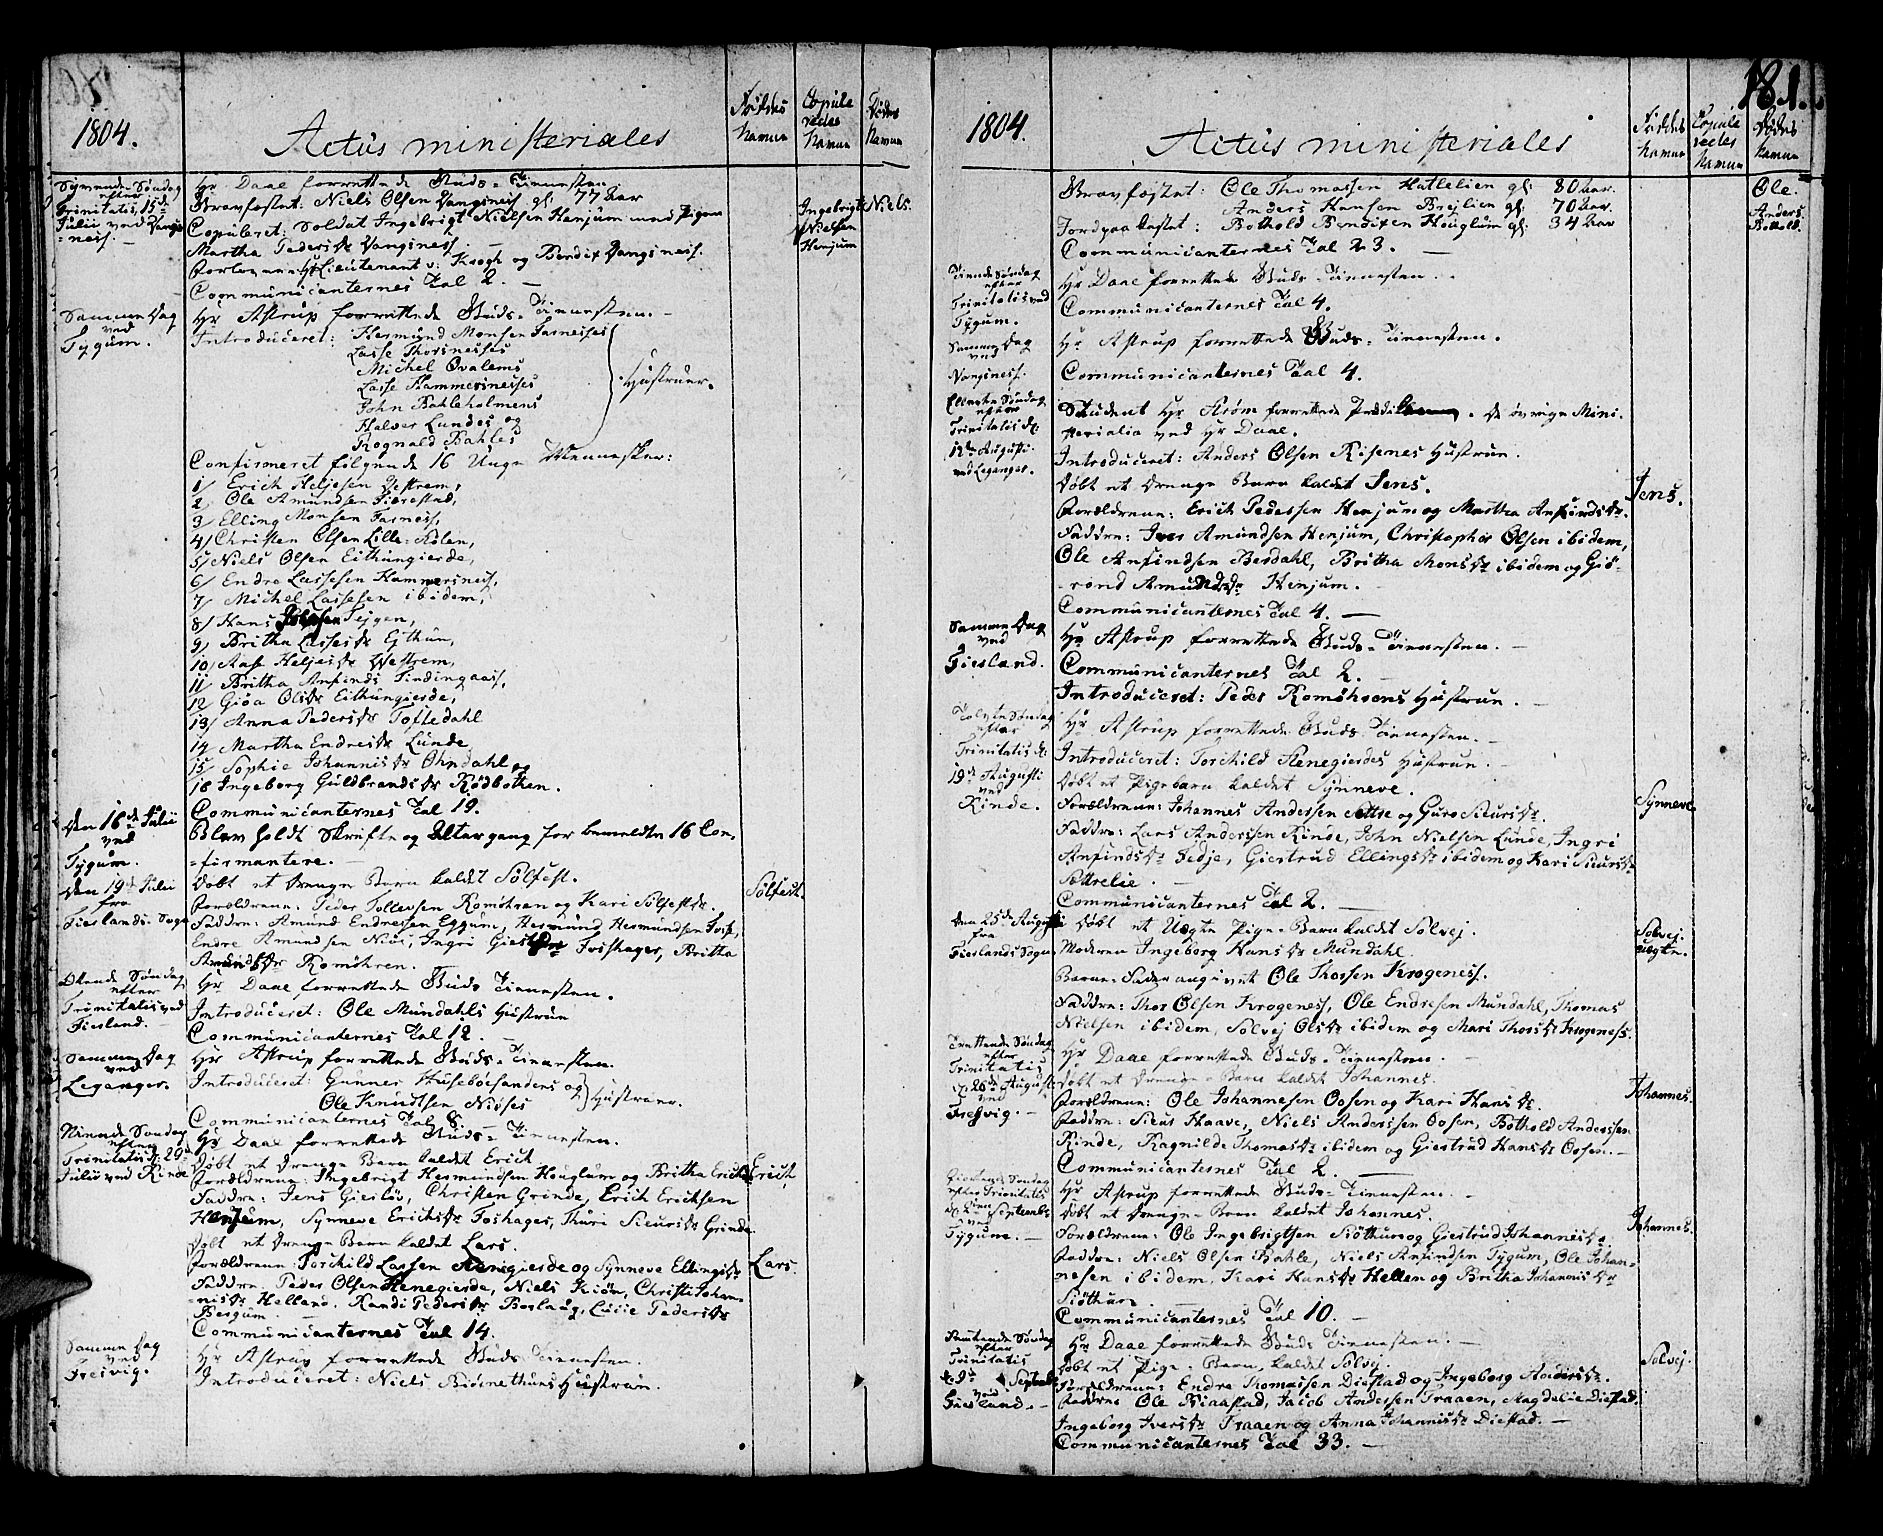 1804.
Actus ministeriales
Fødtes Namne
Copuleredes Namne
Dødes Namne
Syvende Søndag
efter
Trinitatis, 15de
Julii ved Vangs
=ness. —
Hr Daae forrettede Guds-Tienesten.
Gravfæstet: Niels Olsen Vangsness gl: 77 Aar
Niels.
Copuleret: Soldat Ingebrigt Nielsen Henjum med Pigen
Ingebrigt
Nielsen
Henjum
Martha Peders Dr Vangsness. —
Forlovere: Hr Lieutenant v: Krogh og Bendix Vangsness.
Communicanternes Tal 2. —
Samme Dag
ved
Tygum.
Hr Astrup forrettede Guds-Tienesten. —
Introduceret: Hermund Monsen Farneses
Lasse Thorsneses
Michel Qvalems
Lasse Hammersneses
John Bahleholmens
Halver Lundes og
Rognald Bahles
Hustruer.
Confirmeret følgende 16 Unge Mennesker:
1/ Erich Heljesen Vestrem,
2/ Ole Amundsen Fierestad,
3/ Elling Monsen Farness,
4/ Christen Olsen Lille-Kolen,
5/ Niels Olsen Eithungierde,
6/ Endre Lassesen Hammersness,
7/ Michel Lassesen ibidem,
8/ Hans Tejgen,
9/ Britha Lasses Dr Ejthun,
10/ Aase Heljes Dr Westrem,
11 Britha Anfinds Tindingaass,
12 Giøa Ols Dr Eithungierde,
13/ Anna Peders Dr Toftedahl
14 Martha Endres Dr Lunde
15/ Sophie Johannis Dr Ohndahl og
16 Ingeborg Guldbrands Dr Rødbotten.
Communicanternes Tal 19.
Den 16de Julii
ved
Tygum.
Blev holdt Skrifte og Altergang for bemeldte 16 Con=
=firmantere. —
Den 19de Julii
fra
Fierlands-Sogn
Døbt et Drenge Barn kaldet Sølfest.
Sølfest.
Forældrene: Peder Tollevsen Romøhren og Kari Sølfests Dr.
Faddre: Amund Endresen Eggum, Hermund Hermundsen Foss,
Endre Amundsen Niøs, Ingri Foshager, Britta
Amunds Dr Romøhren.
Ottende Søndag
efter
Trinitatis ved
Fierland. —
Hr Daae forrettede Guds Tienesten.
Introduceret: Ole Mundahls Hustrue
Communicanternes Tal 12. —
Samme Dag
ved
Leganger.
Hr Astrup forrettede Guds-Tienesten.
Introduceret: Gunner Husebøesanders og
Ole Knudtsen Niøses
Hustruer.
Communicanternes Tal 8.
Niende Søndag
efter
Trinitatis d: 29de
Julii ved Rinde
Hr Daae forrettede Guds-Tienesten.
Døbt et Drenge Barn kaldet Erich
Forældrene: Ingebrigt Hermundsen Houglum og Britha Erichs
Erich,
Faddre: Jens Gierløe, Christen Grinde, Erich Erichsen
Henjum, Synneve Erichs Dr Foshager, Thuri Siurs Dr Grinde
Døbt et Drenge Barn kaldet Lars.
Forældrene: Torchild Lassen Renegierde og Synneve Ellings Dr
Lars.
Faddre: Peder Olsen Renegierde, Niels Kiøm, Christi Johan=
=nis Dr Helland. Randi Peders Dr Borlaug, Lucie Peders Dr
Bergum —
Communicanternes Tal 14.
Samme Dag
ved
Freivig. —
Hr Astrup forrettede Guds Tienesten.
Introduceret: Niels Biørnethuns Hustrue.
181.
1804.
Actus ministeriales
Fødtes Namne
Copuleredes Namne
Dødes Namne
Gravfæstet: Ole Thomassen Hatlelien gl: 80 Aar.
Ole.
Anders Hansen Brejlien gl: 70 Aar.
Anders.
Jordpaakastet: Bothold Bendixen Houglum gl: 34 Aar
Bothold.
Communicanternes Tal 23. —
Tiende Søndag
efter
Trinitatis ved
Tygum.
Hr Daae forrettede Guds-Tienesten.
Communicanternes Tal 4.
Samme Dag
ved
Vangsness.
Hr Astrup forrettede Guds-Tienesten.
Communicanternes Tal 4.
Ellevte Søndag
efter
Trinitatis d:
12te Augusti
ved Leganger.
Student Hr Strøm forrettede . De øvrige Mini=
sterialia ved Hr Daae.
Introduceret: Anders Olsen Risenes Hustrue.
Døbt et Drenge Barn kaldet Jens.
Jens.
Forældrene: Erich Pedersen Henjum og Martha Anfinds Dr.
Faddre: Iver Amundsen Henjum, Christopher Olsen ibidem,
Ole Anfindsen Berdahl, Britha Mons Dr ibidem og Giø=
=rond Amunds Dr Henjum. —
Communicanternes Tal 4. —
Samme Dag
ved
Fierland.
Hr Astrup forrettede Guds-Tienesten. —
Communicanternes Tal 2. —
Introduceret: Peder Romøhrens Hustrue. —
Tolvte Søndag
efter
Trinitatis d:
19de Augusti
ved
Rinde.
Hr Astrup forrettede Guds-Tienesten. —
Introduceret: Torchild Renegierdes Hustrue. —
Døbt et Pigebarn kaldet Synneve.
Synneve
Forældrene: Johannes Andersen Sættre og Guro Siurs Dr.
Faddre: Lars Anderssen Rinde, John Nielsen Lunde, Ingri
Anfinds Dr Fedje, Giertrud Ellings Dr ibidem og Kari Siurs Dr
Sættrelie. —
Communicanternes Tal 2. —
Den 25de Augusti
fra
Fierlands Sogn.
Døbt et Uægte Pige-Barn kaldet Sølvej.
Sølvej.
uægte.
Moderen Ingeborg Hans Dr Mundahl.
Barne-Fader angivet Ole Thorsen Krogeness.
Faddre: Thor Olsen Krogeness, Ole Endresen Mundahl, Thomas
Nielsen ibidem, Sølvej Ols Dr ibidem og Mari Thors Dr Krogeness.
Trettende Søndag
efter
Trinitatis
d: 26de Augusti
ved
Frejvig. —
Hr Daae forrettede Guds-Tienesten. —
Døbt et Drenge-Barn kaldet Johannes.
Johannes.
Forældrene: Ole Johannesen Oosen og Kari Hans Dr.
Faddre: Siur Haave, Niels Anderssen Oosen, Bothold Anderssen
Rinde, Ragnilde Thomas Dr ibidem og Giertrud Hans Dr Oosen. —
Communicanternes Tal 2. —
Giortende Søndag
efter Trinitatis
d: 2den Septembr
ved
Tygum. —
Hr Astrup forrettede Guds-Tienesten. —
Døbt et Drenge-Barn kaldet Johannes.
Johannes.
Forældrene: Ole Ingebrigtsen Siøthun og Giertrud Johannis Dr.
Faddre: Niels Olsen Bahle, Niels Anfindsen Tygum, Ole Johan=
=nesen ibidem, Kari Hans Dr Hellen og Britha Johannis Dr
Siøthun. —
Communicanternes Tal 10. —
Femtende Søndag
efter
Trinitatis
d: 9de Septembr
ved
Fierland. —
Hr Daae forrettede Guds-Tienesten. —
Døbt et Pige-Barn kaldet Sølvej.
Sølvej.
Forældrene: Endre Thomassen Dierstad og Ingeborg Anders Dr.
Faddre: Ole Niaastad, Jacob Andersen Traaen, Magdelie Dierstad,
Ingeborg Ivers Dr Traaen og Anna Johannis Dr Dierstad. —
Communicanternes Tal 33. —